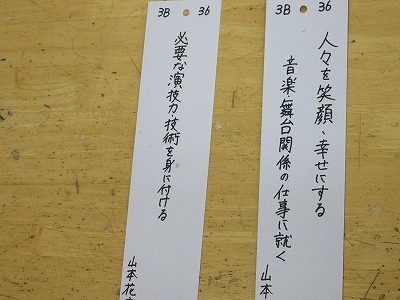 3B 36
人々を笑顔、幸せにする
音楽・舞台関係の仕事に就く
山本
3B 36
必要な演技力技術を身に付ける
山本花